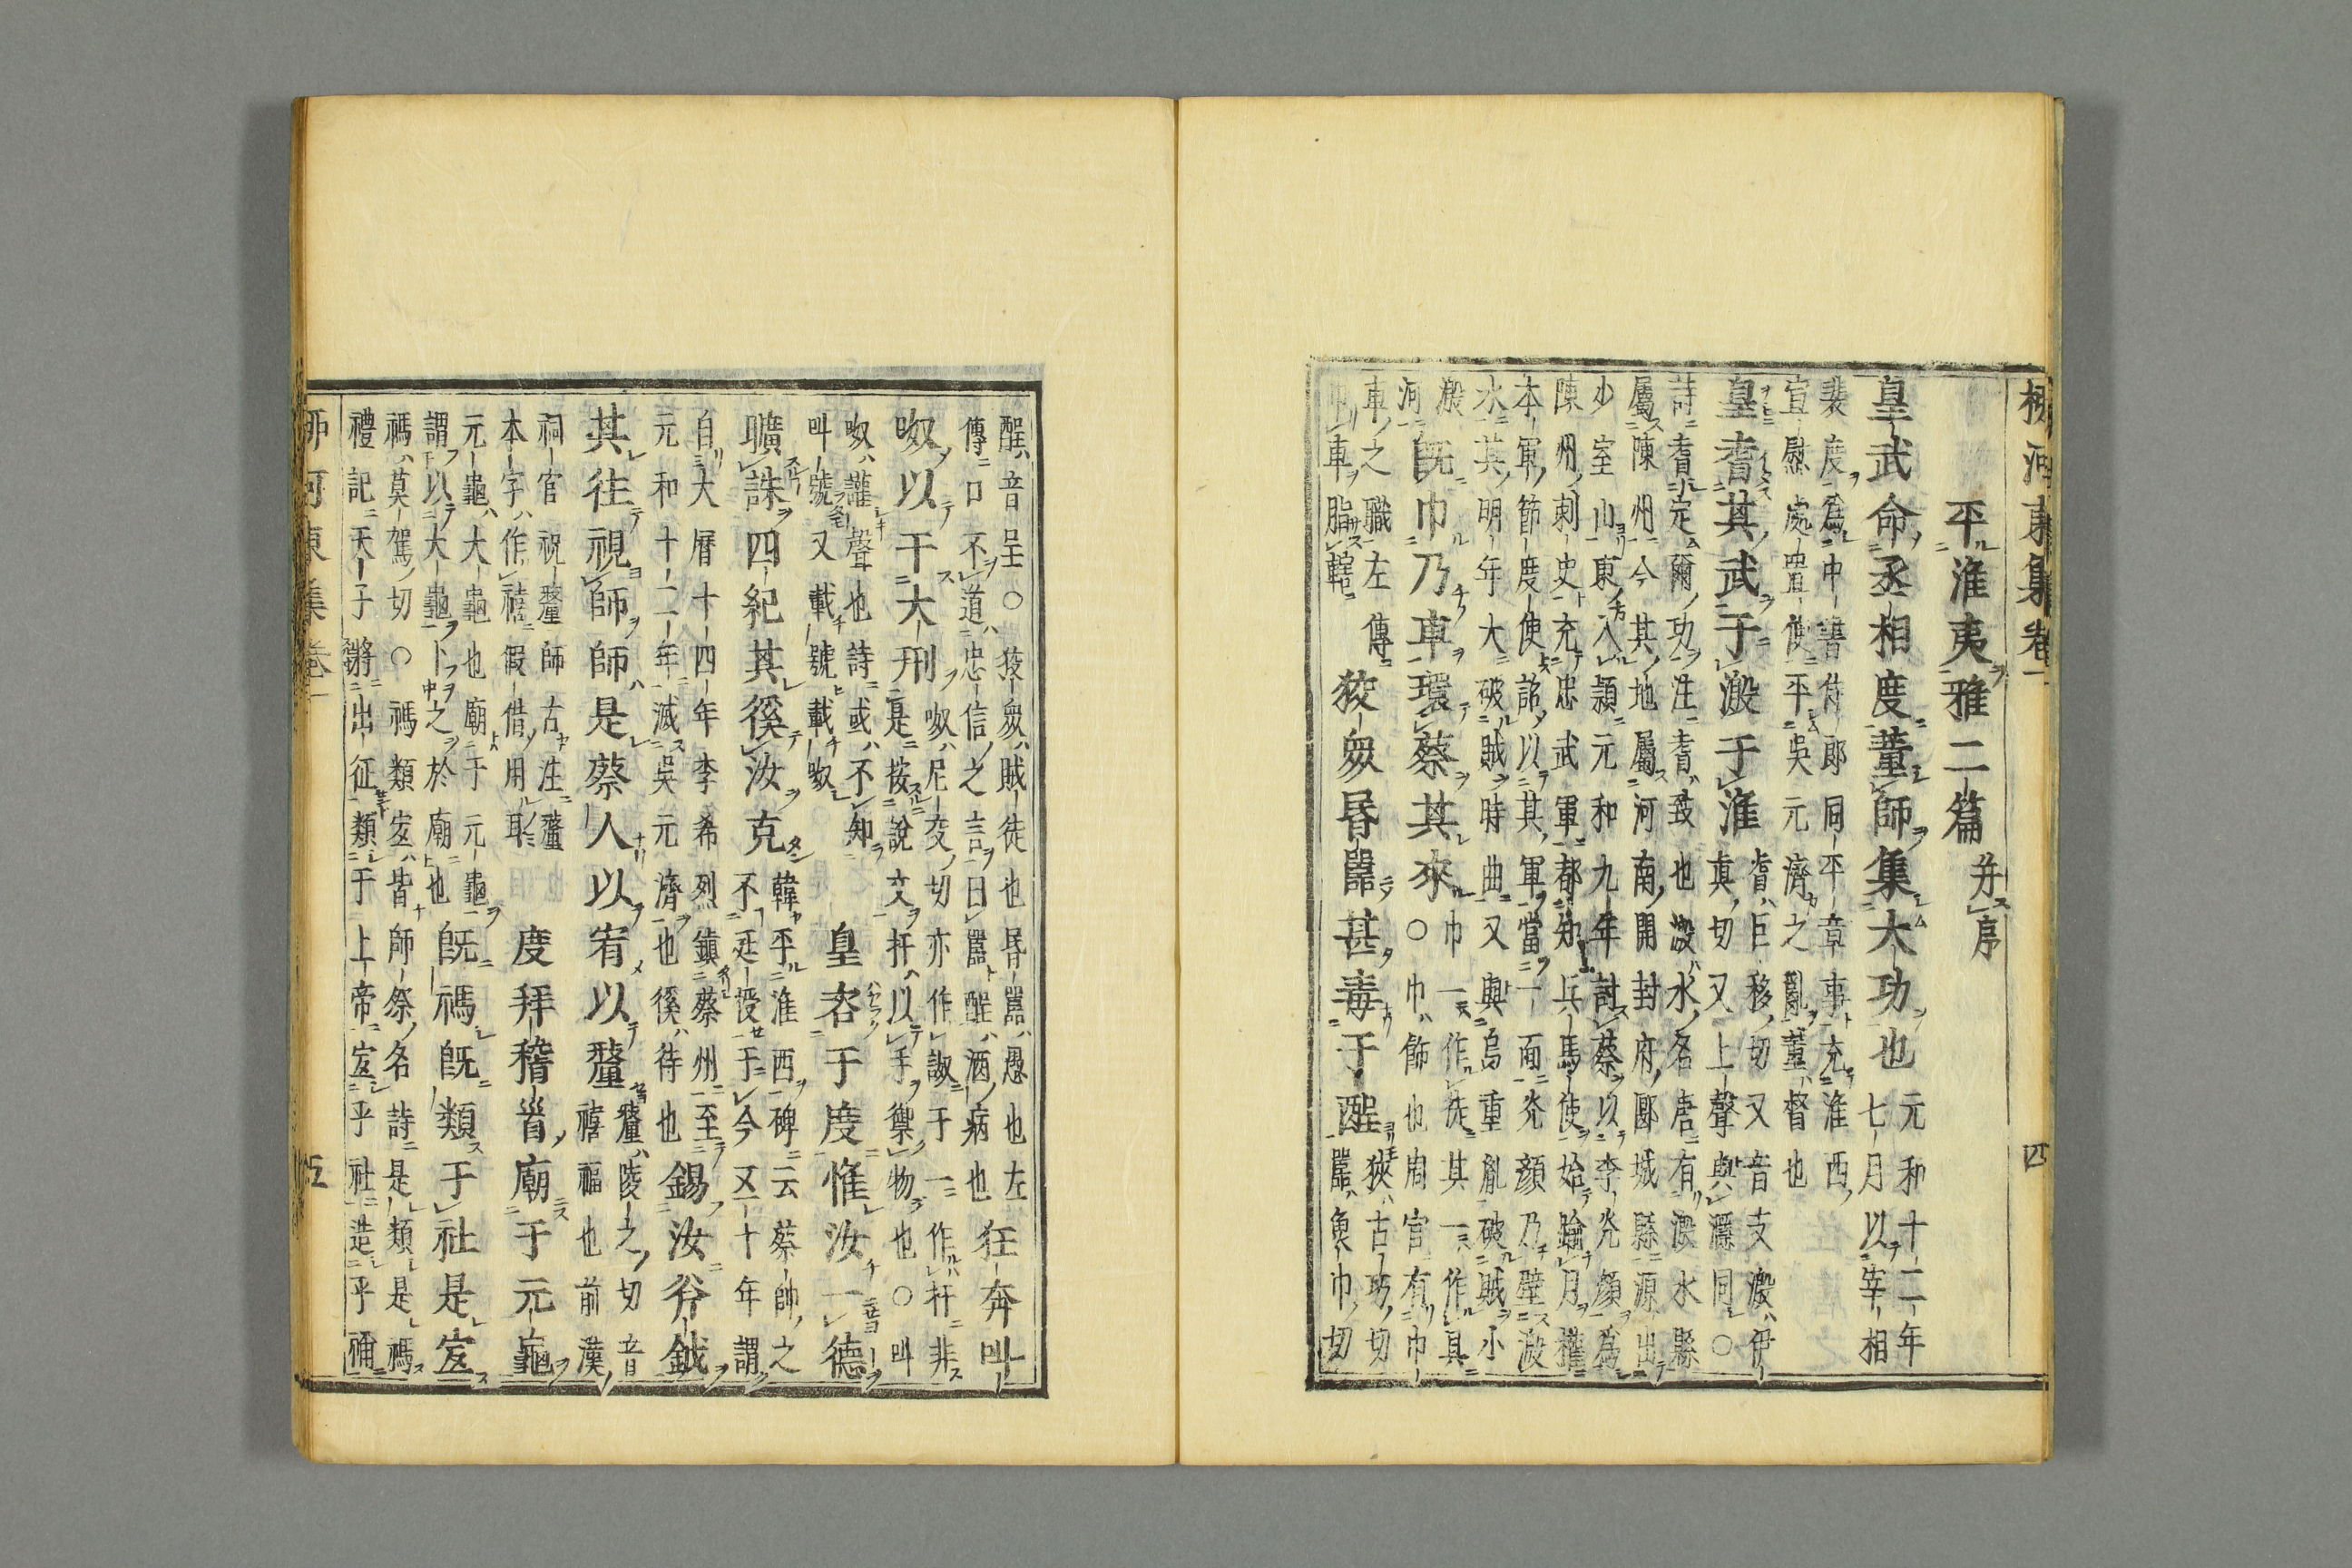 柳河東集卷一 四
平淮夷雅二篇 并序
皇武命丞相度董師集大功也 元和十二年
七月以宰相
裴度為中書侍郎同平章事充淮西
宣慰處置使平吳元濟之亂董督也
皇耆其武于溵于淮 耆巨移切又音支溵伊
真切又上聲與濦同○
詩耆定爾功注耆致也溵水名唐有溵水縣
屬陳州今其地屬河南開封府郾城縣源出
少室山東入潁元和九年討蔡以李光顏為
陳州刺史充忠武軍都知兵馬使始踰月擢
本軍節度使詔以其軍當一面光顏乃壁溵
水其明年大破賊時曲又與烏重胤破賊小
溵
河 既巾乃車環蔡其來 巾一作徒其一作具
○巾飾也周官有巾
車之職左傳
巾車脂轄 狡眾昏嚚甚毒于酲 狡古巧切
嚚魚巾切
酲音呈○狡眾賊徒也昏嚚愚也左
傳口不道忠信之言曰嚚酲酒病也 狂奔叫
呶以干大刑 呶尼交切亦作譊于一作扞非
是按說文扞以手禦物也○叫
呶讙聲也詩或不知
叫號又載號載呶 皇咨于度惟汝一德
曠誅四紀其徯汝克 韓平淮西碑云蔡帥之
不廷授于今又十年謂
自大曆十四年李希烈鎮蔡州至
元和十二年滅吳元濟也徯待也 錫汝斧鉞
其往視師師是蔡人以宥以釐 釐陵之切音
禧福也前漢
祠官祝釐師古注釐
本字作禧假借用耳 度拜稽首廟于元龜
元龜大龜也廟于元龜
謂以大龜卜之於廟也 既禡既類于社是宜
禡莫駕切○禡類宜皆師祭名詩是類是禡
禮記天子將出征類于上帝宜乎社造乎禰
柳河東集卷一 五